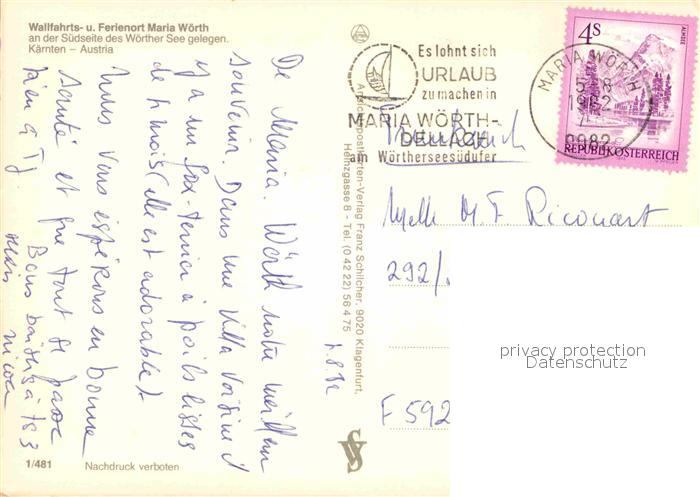 Wallfahrts- u. Ferienort Maria Wörth
an der Südseite des Wörther See gelegen.
Kärnten – Austria
De Maria. Wörth notre meilleur
souvenir. Dans une villa voisine il
y a un fox-terrier à poils lisses
de 4 mois (elle est adorable)
Nous vous espérons en bonne
santé et que tout se passe
bien à Tj
Bons baisers à ts 3
7.8.82
1/481
Nachdruck verboten
Ansichtspostkarten-Verlag Franz Schilcher, 9020 Klagenfurt,
Heinzgasse 8 - Tel. (0 42 22) 56 4 75
Es lohnt sich
URLAUB
zu machen in
MARIA WÖRTH-
DELLACH
am Wörtherseesüdufer
MARIA WÖRTH
1982
9082
4S
ALMSEE
REPUBLIK ÖSTERREICH
Frankreich
Melle M. F. Ricouart
292/
F 592
privacy protection
Datenschutz